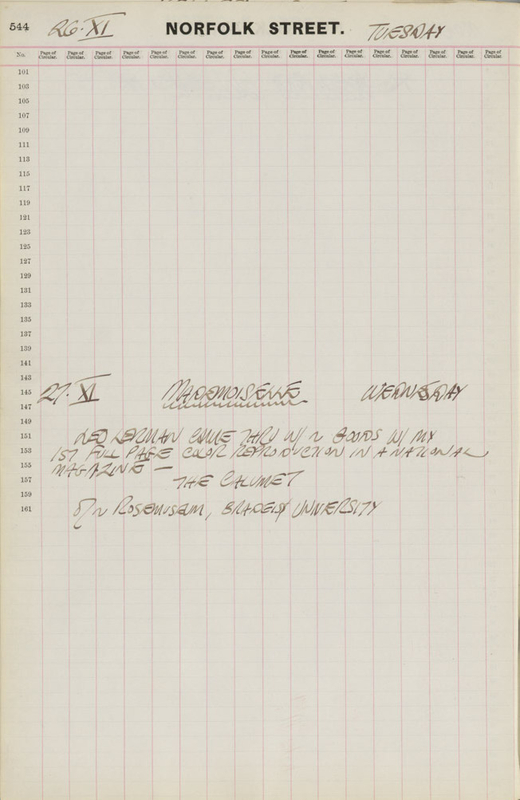 544 26·XI NORFOLK STREET. TUESDAY
No. Page of Circular. Page of Circular. Page of Circular. Page of Circular. Page of Circular. Page of Circular. Page of Circular. Page of Circular. Page of Circular. Page of Circular. Page of Circular. Page of Circular. Page of Circular. Page of Circular. Page of Circular. Page of Circular. Page of Circular.
101
103
105
107
109
111
113
115
117
119
121
123
125
127
129
131
133
135
137
139
141
143
145 27·XI MADEMOISELLE WEDNESDAY
147
149
151 LEO LERMAN CAME THRU W/ GOODS W/ MY
153 1ST FULL PAGE COLOR REPRODUCTION IN A NATIONAL
155 MAGAZINE —
157 THE CALUMET
159
161 ROSEMUSEUM, BRANDEIS UNIVERSITY